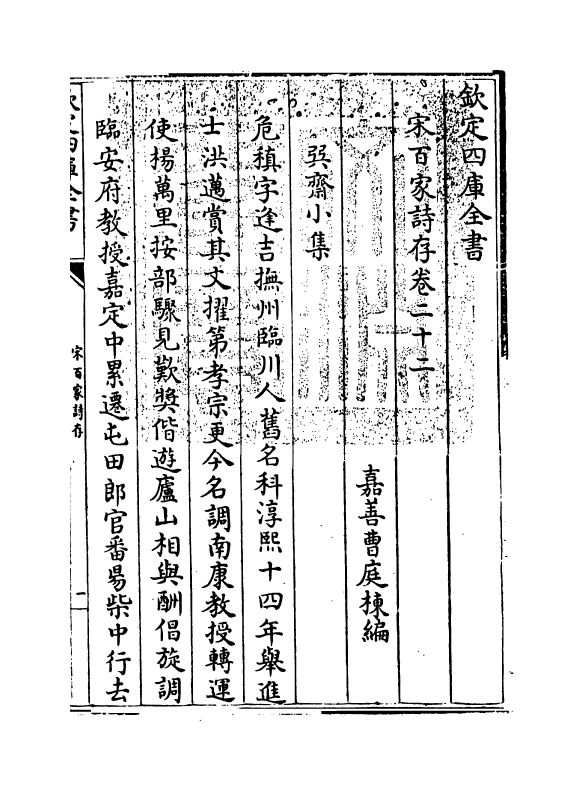 欽定四庫全書
宋百家詩存卷二十二
嘉善曹庭棟編
巽齋小集
危稹字逢吉撫州臨川人舊名科淳熙十四年舉進
士洪邁賞其文擢第孝宗更今名調南康教授轉運
使揚萬里按部驟見歎獎偕遊廬山相與酬倡旋調
臨安府教授嘉定中累遷屯田郎官番昜柴中行去
欽定四庫全書
宋百家詩存